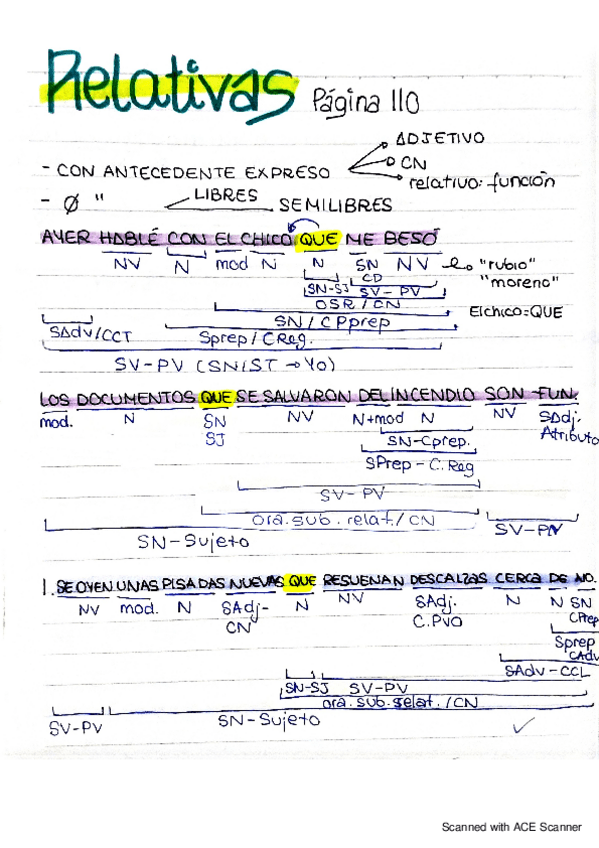 Relativas Página 110
ADJETIVO
- CON ANTECEDENTE EXPRESO CN
relativo: función
- Ø " LIBRES SEMILIBRES
AYER HABLÉ CON EL CHICO QUE ME BESÓ
NV N mod N N SN NV "rubio"
CD "moreno"
SN-SJ SV-PV
OSR / CN El chico=QUE
SN / CPprep
SAdv/CCT Sprep / CReg.
SV-PV (SN/ST → Yo)
LOS DOCUMENTOS QUE SE SALVARON DEL INCENDIO SON FUN.
mod. N SN NV N+mod N NV SAdj.
SJ Atributo
SN-Cprep.
SPrep-C.Reg
SV-PV
ora.sub.relat./CN
SN-Sujeto SV-PV
1. SE OYEN UNAS PISADAS NUEVAS QUE RESUENAN DESCALZAS CERCA DE NO.
NV mod. N SAdj- N NV SAdj. N N SN
CN C.PVO CPrep
Sprep
CAdv
SAdv-CCL
SN-SJ SV-PV
ora.sub.relat./CN
SV-PV SN-Sujeto
Scanned with ACE Scanner